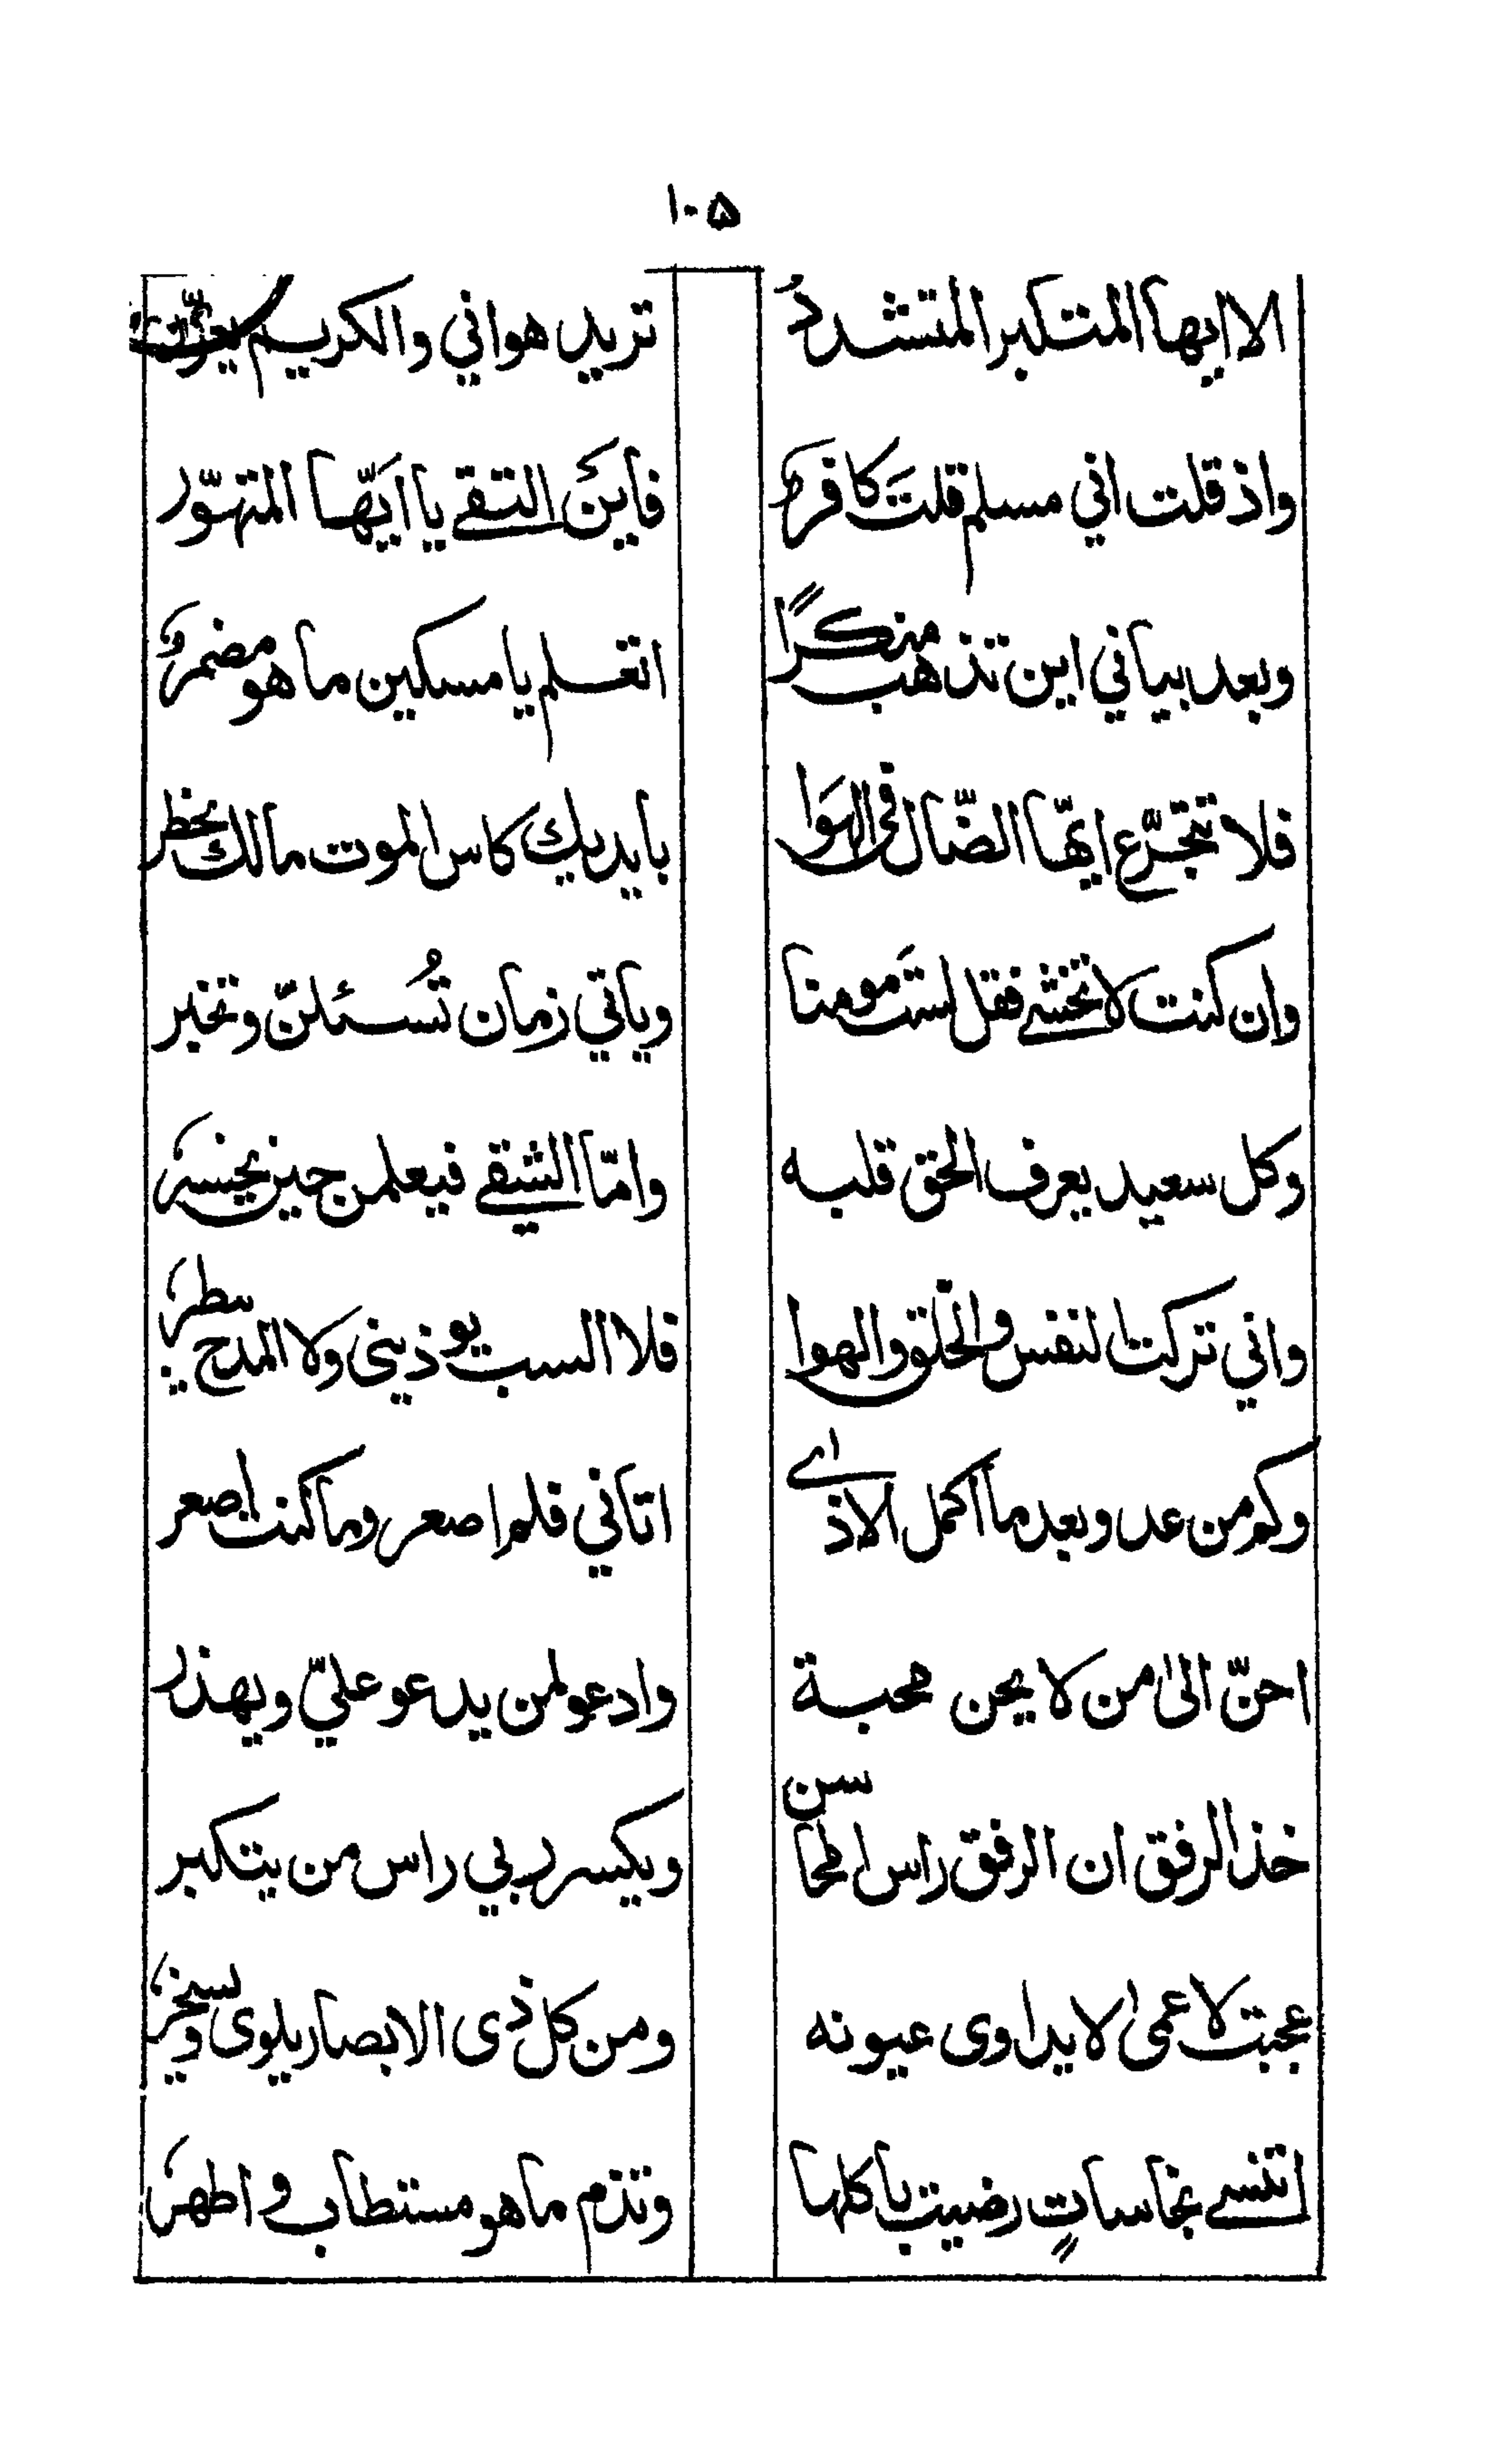 ١٠٥
الا ايها المتكبر المتشددُ تريد هواني والكريم
واذ قلت اني مسلم قلتَ كافر فاينَ التقے يا ايّها المتهوّر
وبعد بياني اين تذهب منكرًا اتعلم يا مسكين ما هو مضمر
فلا تتجرّع ايّها الضّال فى الهَوا بايديك كاس الموت مالك تخطر
وان كنت لا تخشے فقل لستَ مومنا وياتي زمان تُسئلنّ وتخبر
وكل سعيد يعرف الحق قلبه وامّا الشقے فيعلمن حين يخسر
واني تركت النفس والخلق والهوا فلا السب يوذينى ولا المدح يبطر
وكم من عدو بعد ما اكمل الاذے اتاني فلم اصعر وما كنت اصعر
احنّ الىٰ من لا يحن محبة وادعو لمن يدعو عليّ ويهذر
خذ الرفق ان الرفق راس المحاسن ويكسر ربي راس من يتكبر
عجبت لاعمىٰ لا يداوى عيونه ومن كل ذى الابصار يلوى ويسخر
اتنسے نجاساتٍ رضيت باكلها وتذم ما هو مستطاب و اطهر